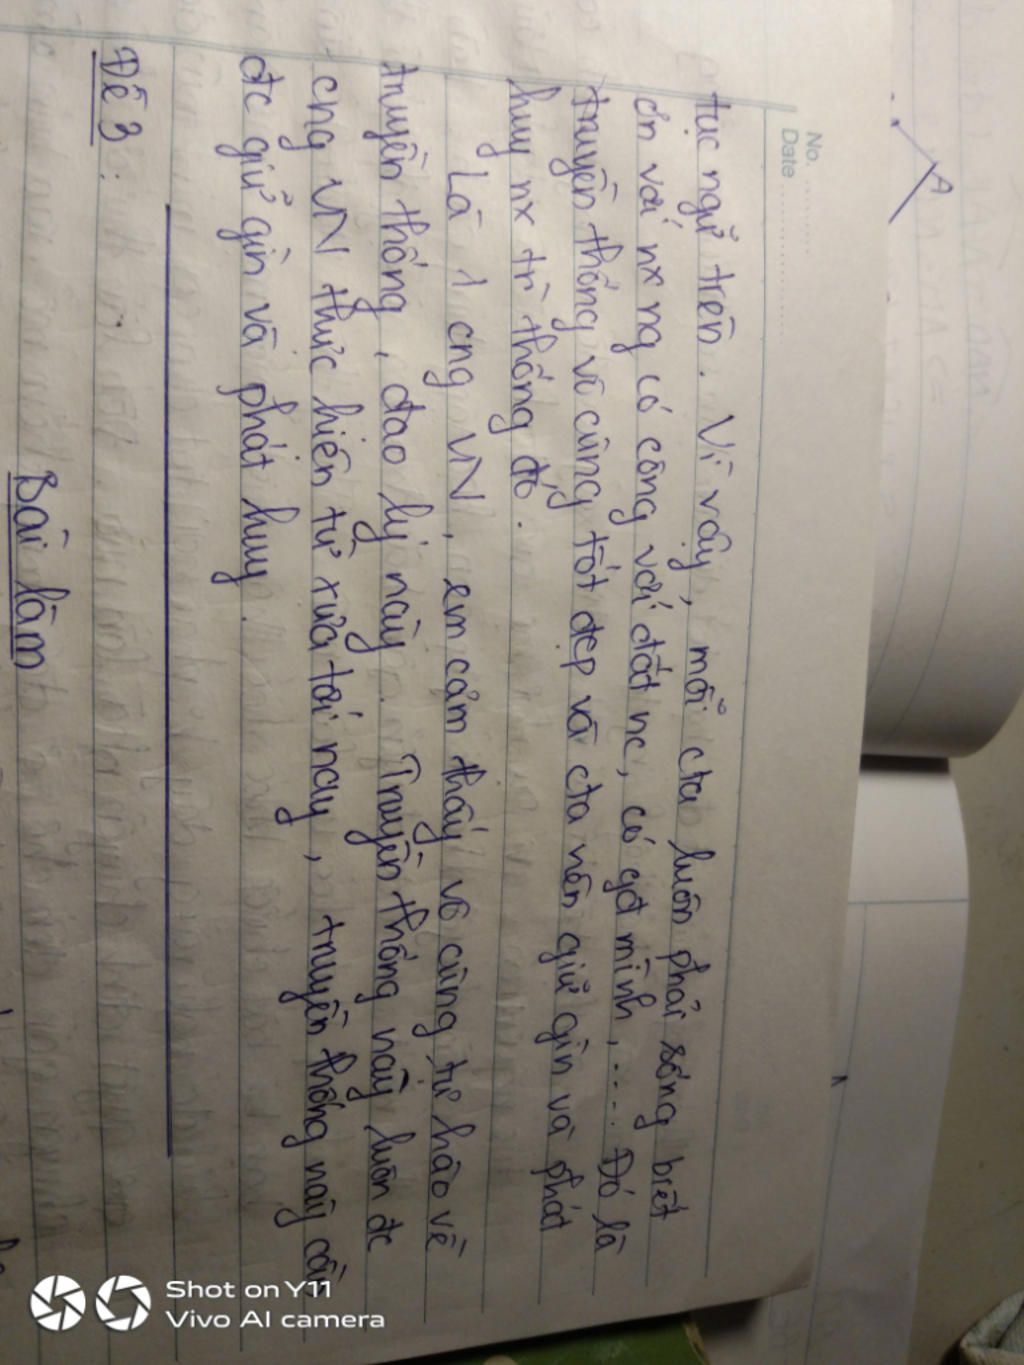 No. ..........
Date ....................
A
tục ngữ trên. Vì vậy, mỗi cta luôn phải sống biết
ơn với nx ng có công với đất nc, có gđ mình, .... Đó là
truyền thống vô cùng tốt đẹp và cta nên giữ gìn và phát
huy nx tr` thống đó.
Là 1 cng VN, em cảm thấy vô cùng tự hào về
truyền thống, đạo lý này. Truyền thống này luôn đc
cng VN thực hiện từ xưa tới nay, truyền thống này cần
đc giữ gìn và phát huy.
Đề 3:
Bài làm
Shot on Y11
Vivo AI camera